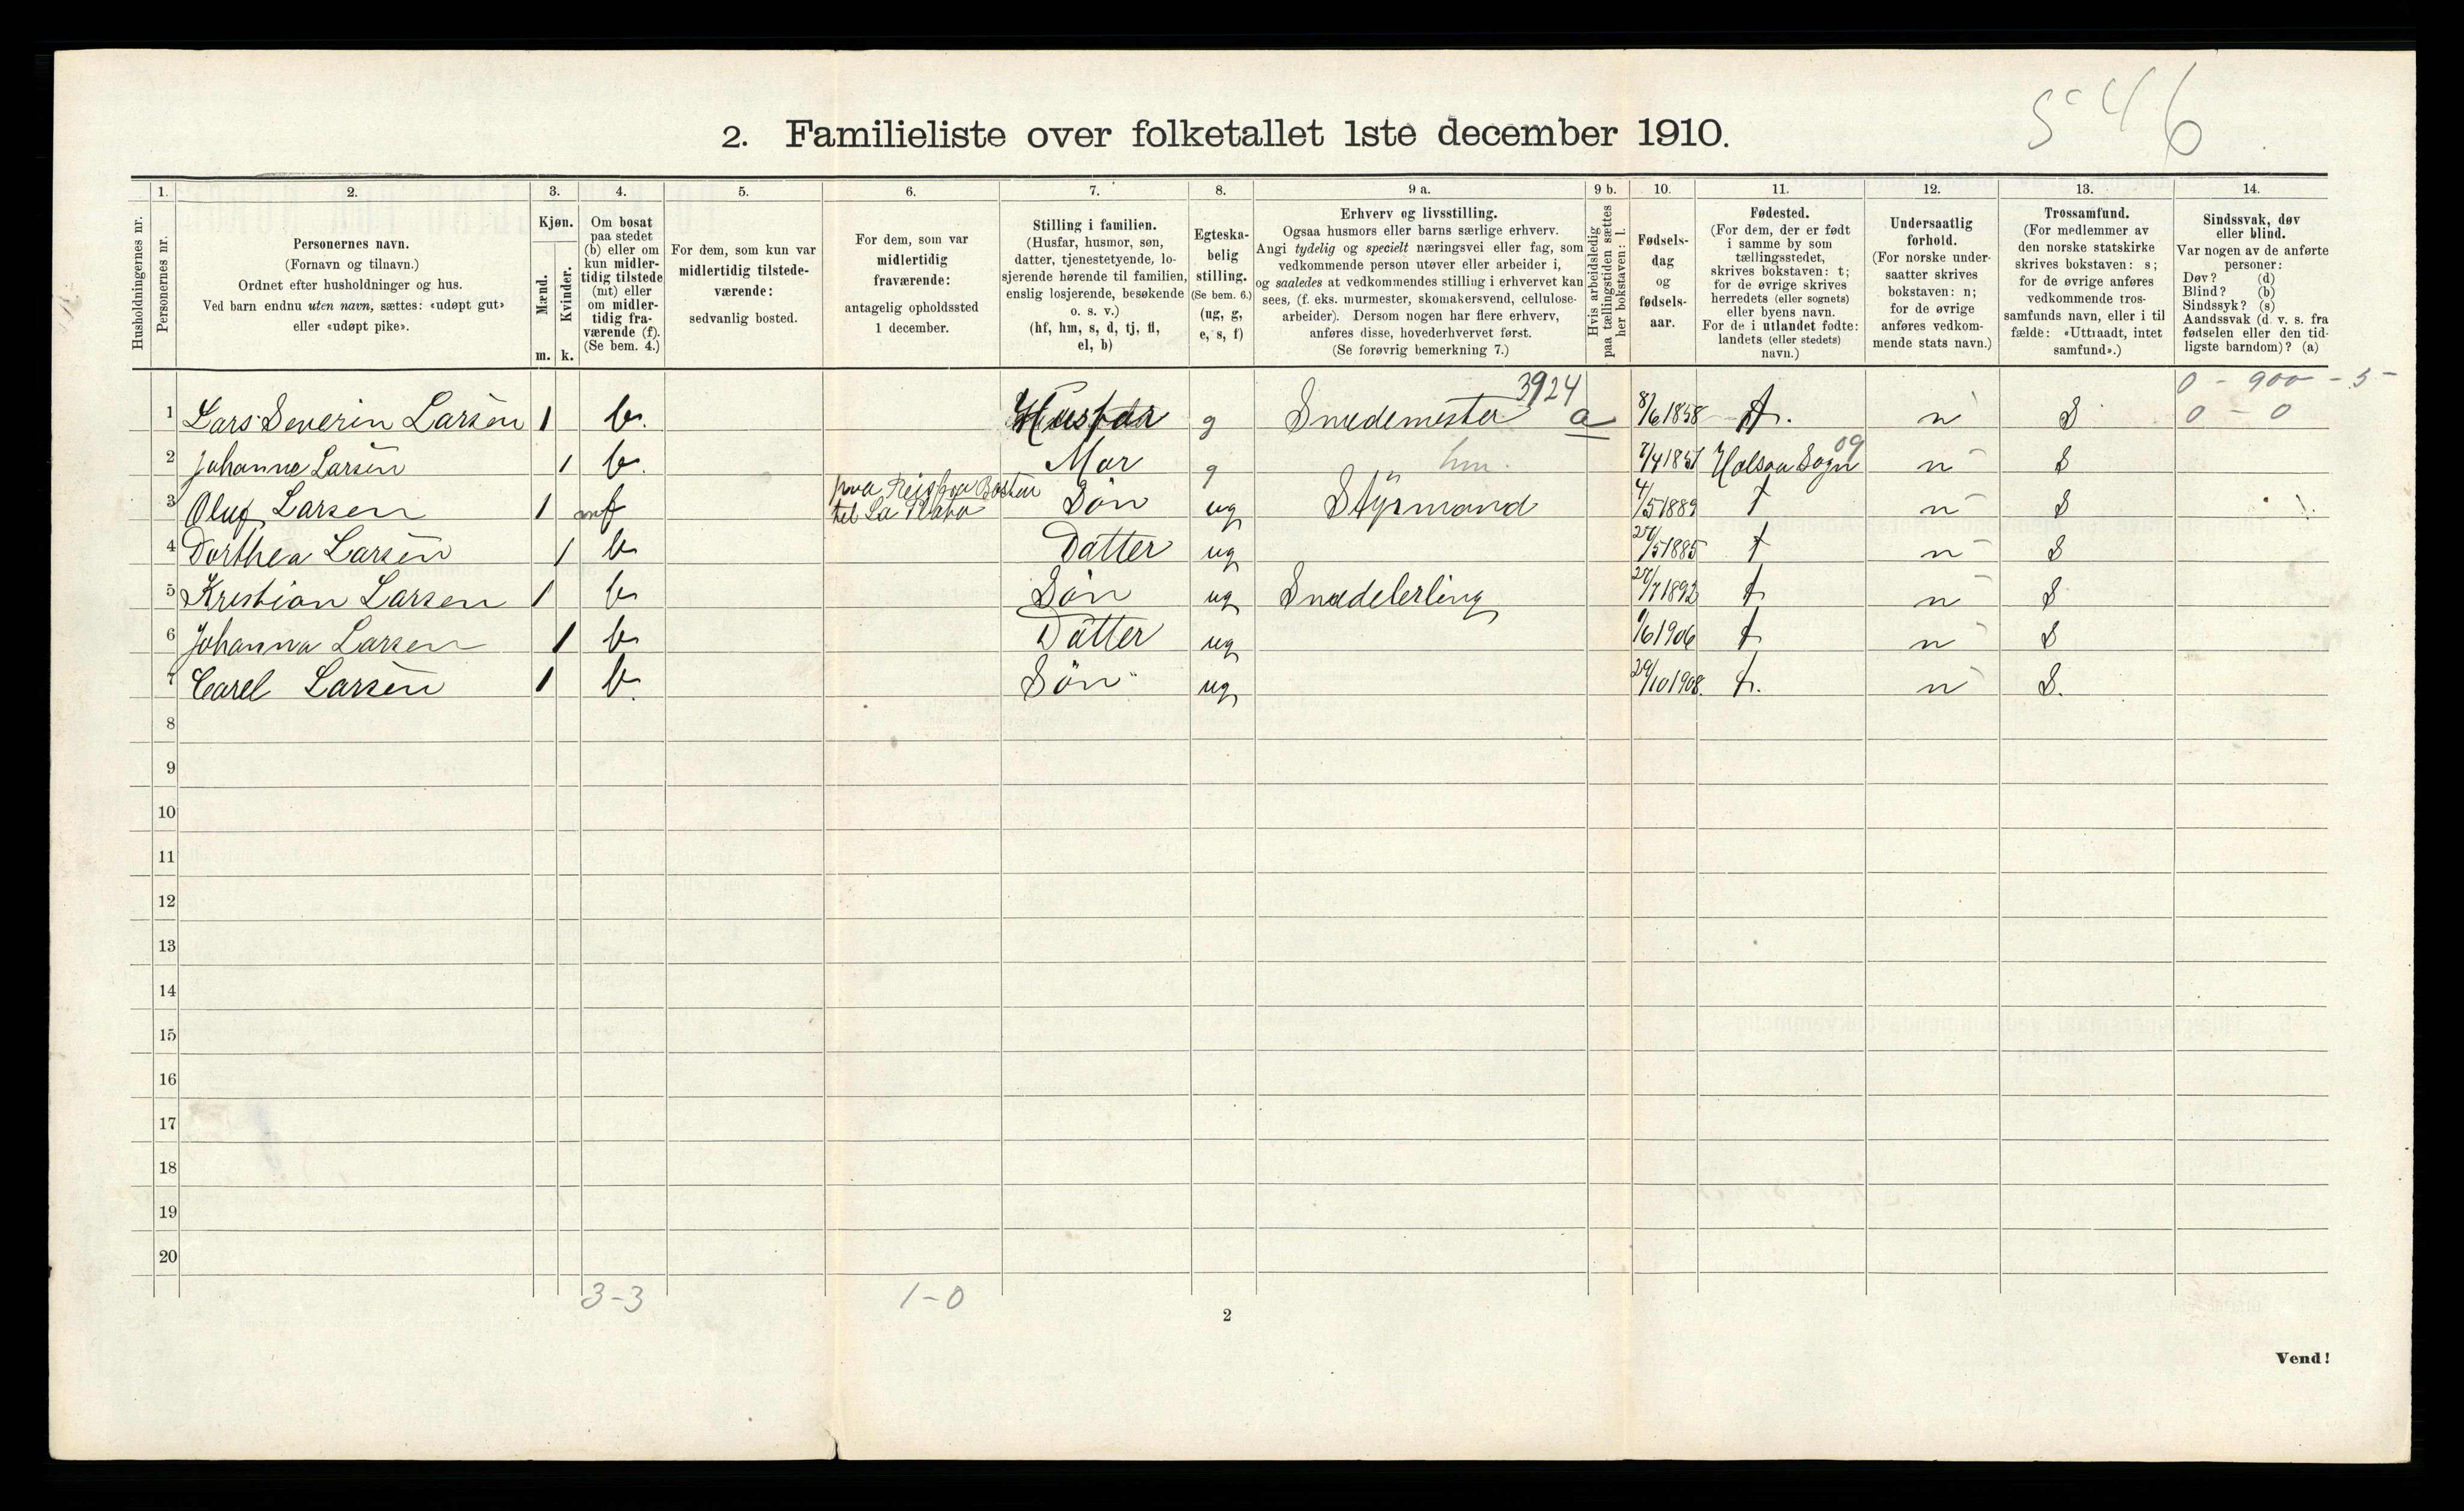 5 4 6
2. Familieliste over folketallet 1ste december 1910.
1. 2. 3. 4. 5. 6. 7. 8. 9 a. 9 b. 10. 11. 12. 13. 14.
Husholdningernes nr.
Personernes nr.
Personernes navn.
(Fornavn og tilnavn.)
Ordnet efter husholdninger og hus.
Ved barn endnu uten navn, sættes: «udøpt gut»
eller «udøpt pike».
Kjøn.
Mænd.
Kvinder.
m. k.
Om bosat
paa stedet
(b) eller om
kun midler-
tidig tilstede
(mt) eller
om midler-
tidig fra-
værende (f).
(Se bem. 4.)
For dem, som kun var
midlertidig tilstede-
værende:
sedvanlig bosted.
For dem, som var
midlertidig
fraværende:
antagelig opholdssted
1 december.
Stilling i familien.
(Husfar, husmor, søn,
datter, tjenestetyende, lo-
sjerende hørende til familien,
enslig losjerende, besøkende
o. s. v.)
(hf, hm, s, d, tj, fl,
el, b)
Egteska-
belig
stilling.
(Se bem. 6.)
(ug, g,
e, s, f)
Erhverv og livsstilling.
Ogsaa husmors eller barns særlige erhverv.
Angi tydelig og specielt næringsvei eller fag, som
vedkommende person utøver eller arbeider i,
og saaledes at vedkommendes stilling i erhvervet kan
sees, (f. eks. murmester, skomakersvend, cellulose-
arbeider). Dersom nogen har flere erhverv,
anføres disse, hovederhvervet først.
(Se forøvrig bemerkning 7.)
Hvis arbeidsledig
paa tællingstiden sættes
her bokstaven: l.
Fødsels-
dag
og
fødsels-
aar.
Fødested.
(For dem, der er født
i samme by som
tællingsstedet,
skrives bokstaven: t;
for de øvrige skrives
herredets (eller sognets)
eller byens navn.
For de i utlandet fødte:
landets (eller stedets)
navn.)
Undersaatlig
forhold.
(For norske under-
saatter skrives
bokstaven: n;
for de øvrige
anføres vedkom-
mende stats navn.)
Trossamfund.
(For medlemmer av
den norske statskirke
skrives bokstaven: s;
for de øvrige anføres
vedkommende tros-
samfunds navn, eller i til
fælde: «Uttraadt, intet
samfund».)
Sindssvak, døv
eller blind.
Var nogen av de anførte
personer:
Døv? (d)
Blind? (b)
Sindssyk? (s)
Aandssvak (d. v. s. fra
fødselen eller den tid-
ligste barndom)? (a)
3924 0 - 900 - 5 -
1 Lars Severin Larsen 1 b. Husfar g Smedemester a 8/6 1858 t. n S 0 - 0
2 Johanne Larsen 1 b. Mor g hm. 7/4 1851 Holsen Sogn 09 n S
3 Oluf Larsen 1 mf paa Reis fra Boston
til La Plata Søn ug Styrmand 4/5 1889 t n S
4 Dorthea Larsen 1 b Datter ug 27/5 1885 t n S
5 Kristian Larsen 1 b Søn ug Smedelerling 27/7 1892 t n S
6 Johanna Larsen 1 b Datter ug 1/6 1906 t n S
7 Carel Larsen 1 b. Søn ug 29/10 1908. t. n S.
8
9
10
11
12
13
14
15
16
17
18
19
20
3-3 1-0
2
Vend!